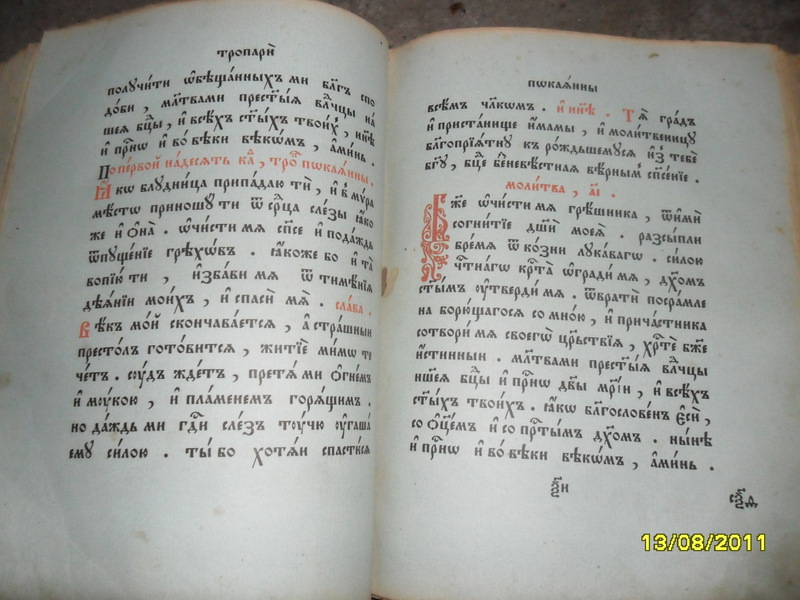 тропарѝ
получи́ти ѡ҆бѣща́нныхъ ми бл҃гъ спо
до́би , мл҃твами прест҃ы́ѧ влⷣчцы на́
шеѧ бцⷣы , и҆ всѣ́хъ ст҃ы́хъ твои́хъ , нн҃ѣ
и҆ при́снѡ и҆ во́ вѣки вѣко́мъ , а҆ми́нь .
По пе́рвой на́ десѧть каⷴ , троⷫ҇ поκаѧ́нны .
Ꙗ҆́кѡ блудни́ца припа́даю тѝ , и҆ в҆ мѵ́ра
мѣ́сто приношу́ ти ѿ срⷣца сле́зы ꙗ҆́ко
же и҆ ѻ҆на̀ . ѡ҆чи́сти мѧ сп҃се и҆ пода́ждь
ѿпуще́нїе грѣхо́въ . ꙗ҆́коже бо и҆ та̀
вопїю́ ти , и҆зба́ви мѧ ѿ тимѣ́нїѧ
дѣѧ́нїи мои́хъ , и҆ спасѝ мѧ̀ . сла́ва .
Вѣ́къ мо́й сконча́ваетсѧ , а҆ стра́шныи
престо́лъ гото́витсѧ , житїѐ ми́мѡ те
че́тъ . су́дъ жде́тъ , претѧ̀ ми ѻ҆гне́мъ
и҆ му́кою , и҆ пла́менемъ горѧ́щимъ .
но да́ждь ми гдⷭ҇и сле́зъ ту́чю ᲂу҆гаша́
ему си́лою . ты́ бо хотѧ́и спасти́сѧ
пѡкаѧ́нны
всѣ́мъ чл҃кѡмъ . и҆ нн҃ѣ . Тѧ̀ гра́дъ
и҆ приста́нище и҆́мамы , и҆ моли́твеницу
благопрїѧ́тну къ ро́ждьшемусѧ и҆з̾ тебѐ
бг҃у , бцⷣе бг҃оневѣ́стнаѧ вѣ́рнымъ сп҃се́нїе .
моли́тва , а҃і .
Бж҃е ѡ҆чи́сти мѧ грѣ́шника , ѿимѝ
согнитїѐ дш҃и̇ мое́ѧ . разсы́пли
бре́мѧ ѿ ко́зни лука́вагѡ . си́лою
чⷭ҇тна́гѡ крⷭ҇та̀ ѡ҆градѝ мѧ , дх҃омъ
ст҃ы́мъ ᲂу҆твердѝ мѧ . ѿвратѝ посра́мле
на борю́щагосѧ со мно́ю , и҆ прича́стника
сотворѝ мѧ своегѡ̀ црⷭ҇твїѧ , хрⷭ҇тѐ бж҃е
и҆́стинныи . мл҃твами прест҃ы́ѧ влⷣчцы
нш҃еѧ бцⷣы и҆ при́снѡ дв҃ы мр҃і́и , и҆ всѣ́хъ
ст҃ы́хъ твои́хъ . ꙗ҆́кѡ благослове́нъ є҆сѝ ,
со ѻ҆ц҃е́мъ и҆ со прест҃ы́мъ дх҃омъ . ны́нѣ
и҆ при́снѡ и҆ во́ вѣки вѣкѡ́мъ , а҆ми́нь .
13/08/2011